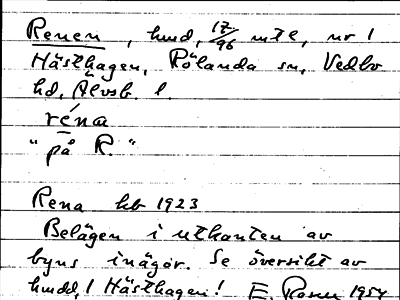 Renen, hmd, 17/96 mtl, nr 1
Hästhagen, Rölanda sn, Vedbo
hd, Älvsb. l.
réna
"på R."
Rena hb 1923
Belägen i utkanten av
byns inägor. Se översikt av
hmdd, / Hästhagen! E. Rosen 1954